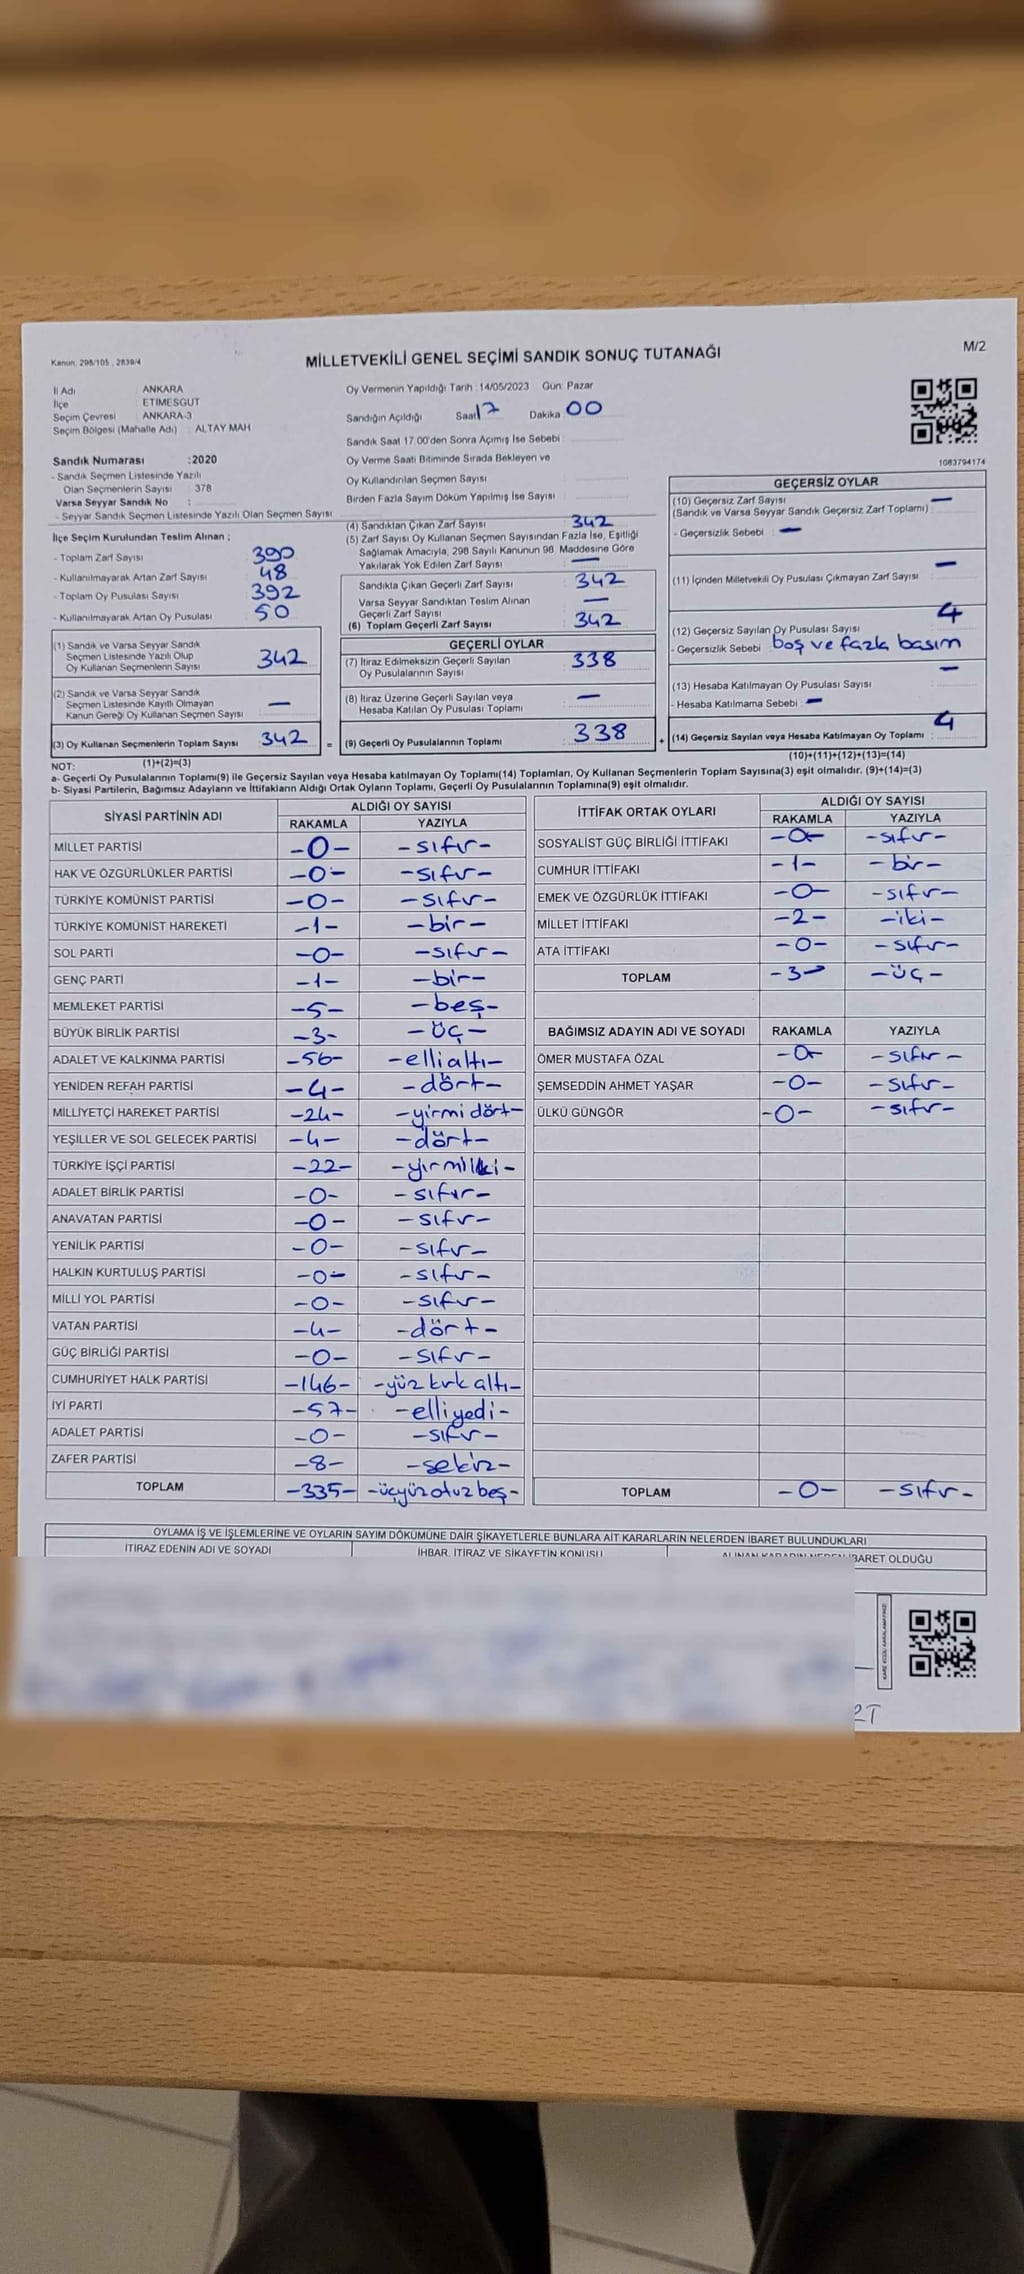 Kanun, 298/105 , 2839/4
MİLLETVEKİLİ GENEL SEÇİMİ SANDIK SONUÇ TUTANAĞI
M/2
İl Adı : ANKARA
İlçe : ETİMESGUT
Seçim Çevresi : ANKARA-3
Seçim Bölgesi (Mahalle Adı) : ALTAY MAH
Sandık Numarası :2020
- Sandık Seçmen Listesinde Yazılı
Olan Seçmenlerin Sayısı : 378
Varsa Seyyar Sandık No :
- Seyyar Sandık Seçmen Listesinde Yazılı Olan Seçmen Sayısı :
Oy Vermenin Yapıldığı Tarih : 14/05/2023 Gün: Pazar
Sandığın Açıldığı Saat 17 Dakika 00
Sandık Saat 17.00'den Sonra Açımış İse Sebebi :
Oy Verme Saati Bitiminde Sırada Bekleyen ve
Oy Kullandırılan Seçmen Sayısı
Birden Fazla Sayım Döküm Yapılmış İse Sayısı
1063794174
İlçe Seçim Kurulundan Teslim Alınan ;
- Toplam Zarf Sayısı : 390
- Kullanılmayarak Artan Zarf Sayısı : 48
- Toplam Oy Pusulası Sayısı : 392
- Kullanılmayarak Artan Oy Pusulası : 50
(1) Sandık ve Varsa Seyyar Sandık
Seçmen Listesinde Yazılı Olup
Oy Kullanan Seçmenlerin Sayısı 342
(2) Sandık ve Varsa Seyyar Sandık
Seçmen Listesinde Kayıtlı Olmayan
Kanun Gereği Oy Kullanan Seçmen Sayısı : —
(3) Oy Kullanan Seçmenlerin Toplam Sayısı : 342 =
(1)+(2)=(3)
(4) Sandıktan Çıkan Zarf Sayısı : 342
(5) Zarf Sayısı Oy Kullanan Seçmen Sayısından Fazla İse, Eşitliği
Sağlamak Amacıyla, 298 Sayılı Kanunun 98. Maddesine Göre
Yakılarak Yok Edilen Zarf Sayısı : —
Sandıkta Çıkan Geçerli Zarf Sayısı : 342
Varsa Seyyar Sandıktan Teslim Alınan
Geçerli Zarf Sayısı : —
(6) Toplam Geçerli Zarf Sayısı : 342
GEÇERLİ OYLAR
(7) İtiraz Edilmeksizin Geçerli Sayılan
Oy Pusulalarının Sayısı : 338
(8) İtiraz Üzerine Geçerli Sayılan veya
Hesaba Katılan Oy Pusulası Toplamı : —
(9) Geçerli Oy Pusulalarının Toplamı : 338 +
GEÇERSİZ OYLAR
(10) Geçersiz Zarf Sayısı : —
(Sandık ve Varsa Seyyar Sandık Geçersiz Zarf Toplamı)
- Geçersizlik Sebebi : —
(11) İçinden Milletvekili Oy Pusulası Çıkmayan Zarf Sayısı : —
(12) Geçersiz Sayılan Oy Pusulası Sayısı : 4
- Geçersizlik Sebebi : boş ve fazla basım
(13) Hesaba Katılmayan Oy Pusulası Sayısı : —
- Hesaba Katılmama Sebebi : —
(14) Geçersiz Sayılan veya Hesaba Katılmayan Oy Toplamı : 4
(10)+(11)+(12)+(13)=(14)
NOT:
a- Geçerli Oy Pusulalarının Toplamı(9) ile Geçersiz Sayılan veya Hesaba katılmayan Oy Toplamı(14) Toplamları, Oy Kullanan Seçmenlerin Toplam Sayısına(3) eşit olmalıdır. (9)+(14)=(3)
b- Siyasi Partilerin, Bağımsız Adayların ve İttifakların Aldığı Ortak Oyların Toplamı, Geçerli Oy Pusulalarının Toplamına(9) eşit olmalıdır.
SİYASİ PARTİNİN ADI ALDIĞI OY SAYISI
RAKAMLA YAZIYLA
MİLLET PARTİSİ -0- -sıfır-
HAK VE ÖZGÜRLÜKLER PARTİSİ -0- -sıfır-
TÜRKİYE KOMÜNİST PARTİSİ -0- -sıfır-
TÜRKİYE KOMÜNİST HAREKETİ -1- -bir-
SOL PARTİ -0- -sıfır-
GENÇ PARTİ -1- -bir-
MEMLEKET PARTİSİ -5- -beş-
BÜYÜK BİRLİK PARTİSİ -3- -üç-
ADALET VE KALKINMA PARTİSİ -56- -elli altı-
YENİDEN REFAH PARTİSİ -4- -dört-
MİLLİYETÇİ HAREKET PARTİSİ -24- -yirmi dört-
YEŞİLLER VE SOL GELECEK PARTİSİ -4- -dört-
TÜRKİYE İŞÇİ PARTİSİ -22- -yirmi iki-
ADALET BİRLİK PARTİSİ -0- -sıfır-
ANAVATAN PARTİSİ -0- -sıfır-
YENİLİK PARTİSİ -0- -sıfır-
HALKIN KURTULUŞ PARTİSİ -0- -sıfır-
MİLLİ YOL PARTİSİ -0- -sıfır-
VATAN PARTİSİ -4- -dört-
GÜÇ BİRLİĞİ PARTİSİ -0- -sıfır-
CUMHURİYET HALK PARTİSİ -146- -yüz kırk altı-
İYİ PARTİ -57- -elli yedi-
ADALET PARTİSİ -0- -sıfır-
ZAFER PARTİSİ -8- -sekiz-
TOPLAM -335- -üçyüz otuz beş-
İTTİFAK ORTAK OYLARI ALDIĞI OY SAYISI
RAKAMLA YAZIYLA
SOSYALİST GÜÇ BİRLİĞİ İTTİFAKI -0- -sıfır-
CUMHUR İTTİFAKI -1- -bir-
EMEK VE ÖZGÜRLÜK İTTİFAKI -0- -sıfır-
MİLLET İTTİFAKI -2- -iki-
ATA İTTİFAKI -0- -sıfır-
TOPLAM -3- -üç-
BAĞIMSIZ ADAYIN ADI VE SOYADI RAKAMLA YAZIYLA
ÖMER MUSTAFA ÖZAL -0- -sıfır-
ŞEMSEDDİN AHMET YAŞAR -0- -sıfır-
ÜLKÜ GÜNGÖR -0- -sıfır-
TOPLAM -0- -sıfır-
OYLAMA İŞ VE İŞLEMLERİNE VE OYLARIN SAYIM DÖKÜMÜNE DAİR ŞİKAYETLERLE BUNLARA AİT KARARLARIN NELERDEN İBARET BULUNDUKLARI
İTİRAZ EDENİN ADI VE SOYADI İHBAR, İTİRAZ VE ŞİKAYETİN KONUSU ALINAN KARARIN NEDEN İBARET OLDUĞU